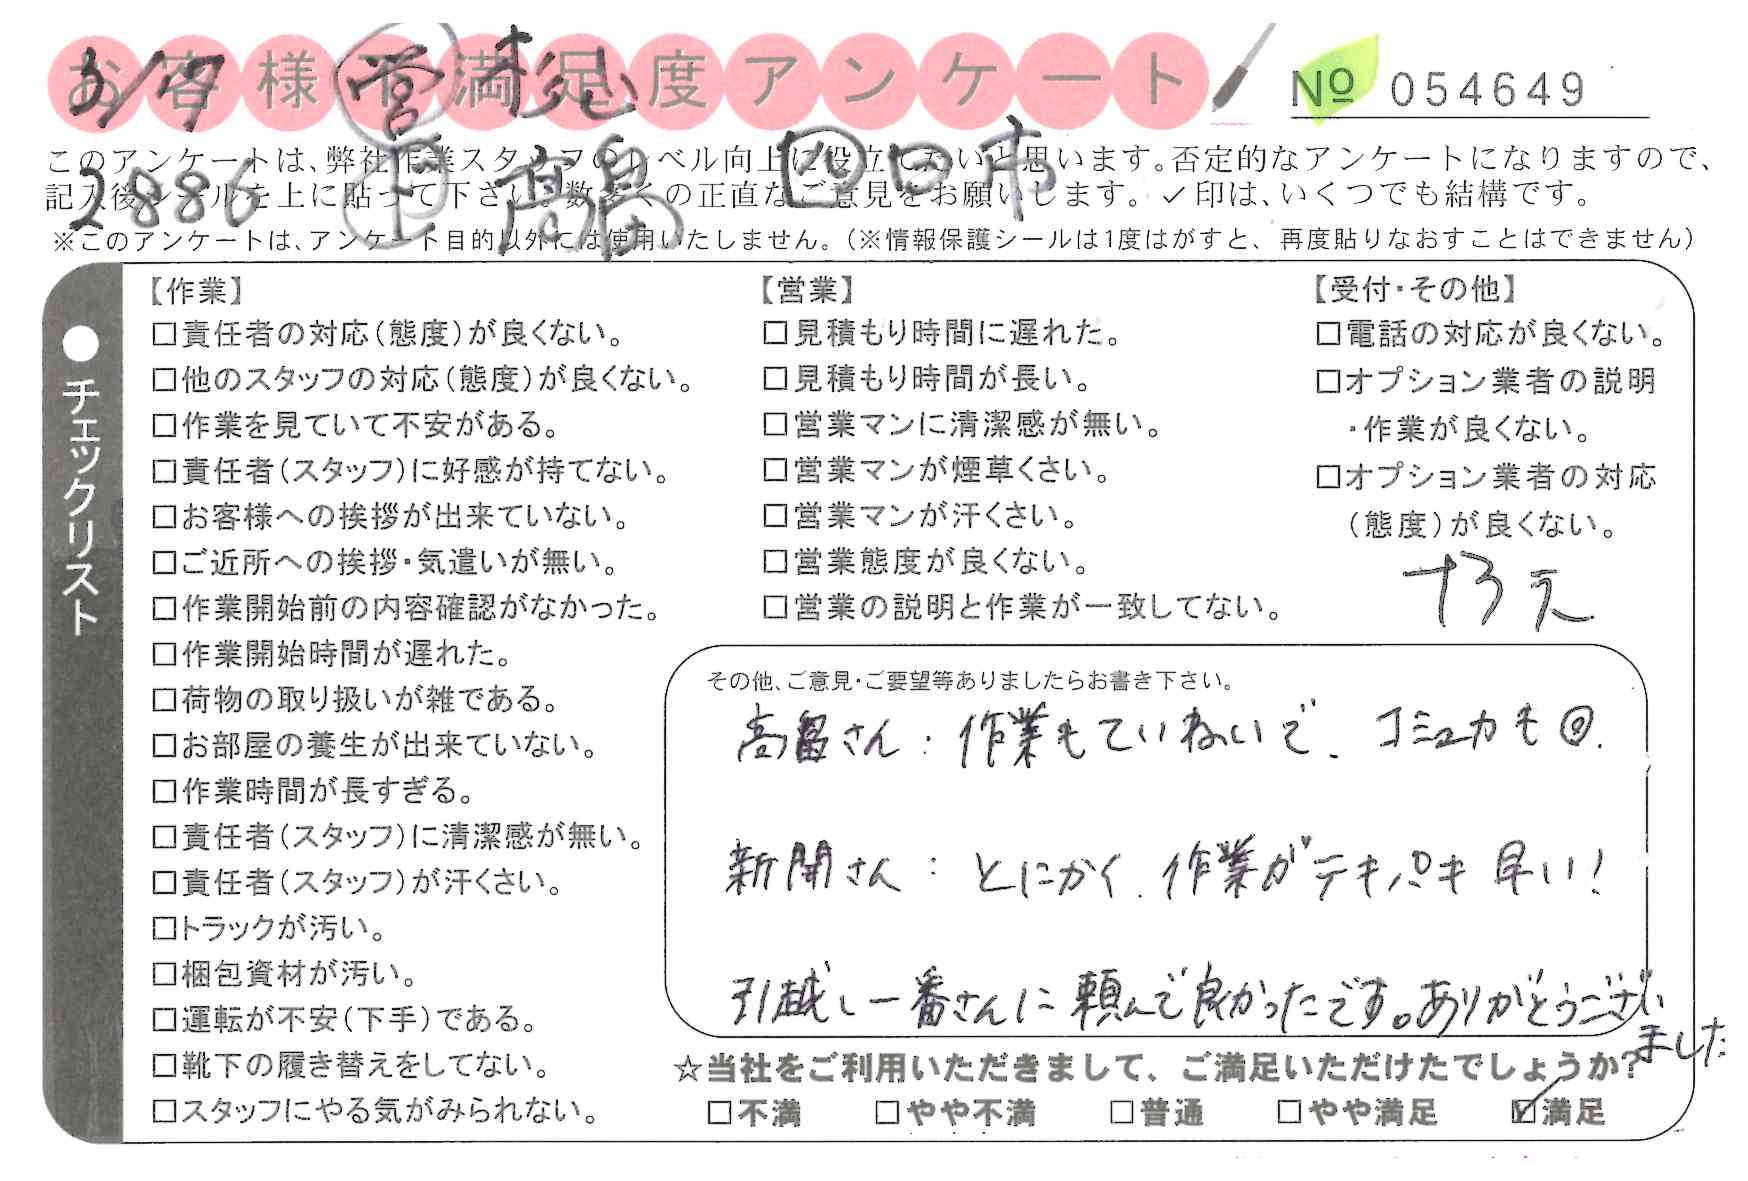 お客様不満足度アンケート
№ 054649
3/7 営 杉心
2886 士 高畠 四日市
このアンケートは、弊社作業スタッフのレベル向上に役立てたいと思います。否定的なアンケートになりますので、
記入後シールを上に貼って下さい。数多くの正直なご意見をお願いします。✓印は、いくつでも結構です。
※このアンケートは、アンケート目的以外には使用いたしません。（※情報保護シールは1度はがすと、再度貼りなおすことはできません）
●チェックリスト
【作業】
□責任者の対応（態度）が良くない。
□他のスタッフの対応（態度）が良くない。
□作業を見ていて不安がある。
□責任者（スタッフ）に好感が持てない。
□お客様への挨拶が出来ていない。
□ご近所への挨拶・気遣いが無い。
□作業開始前の内容確認がなかった。
□作業開始時間が遅れた。
□荷物の取り扱いが雑である。
□お部屋の養生が出来ていない。
□作業時間が長すぎる。
□責任者（スタッフ）に清潔感が無い。
□責任者（スタッフ）が汗くさい。
□トラックが汚い。
□梱包資材が汚い。
□運転が不安（下手）である。
□靴下の履き替えをしてない。
□スタッフにやる気がみられない。
【営業】
□見積もり時間に遅れた。
□見積もり時間が長い。
□営業マンに清潔感が無い。
□営業マンが煙草くさい。
□営業マンが汗くさい。
□営業態度が良くない。
□営業の説明と作業が一致してない。
【受付・その他】
□電話の対応が良くない。
□オプション業者の説明
・作業が良くない。
□オプション業者の対応
（態度）が良くない。
その他、ご意見・ご要望等ありましたらお書き下さい。
高畠さん：作業もていねいで、コミュ力も◎.
新開さん：とにかく、作業がテキパキ早い！
引越し一番さんに頼んで良かったです。ありがとうござい
ました
☆当社をご利用いただきまして、ご満足いただけたでしょうか？
□不満 □やや不満 □普通 □やや満足 ☑満足